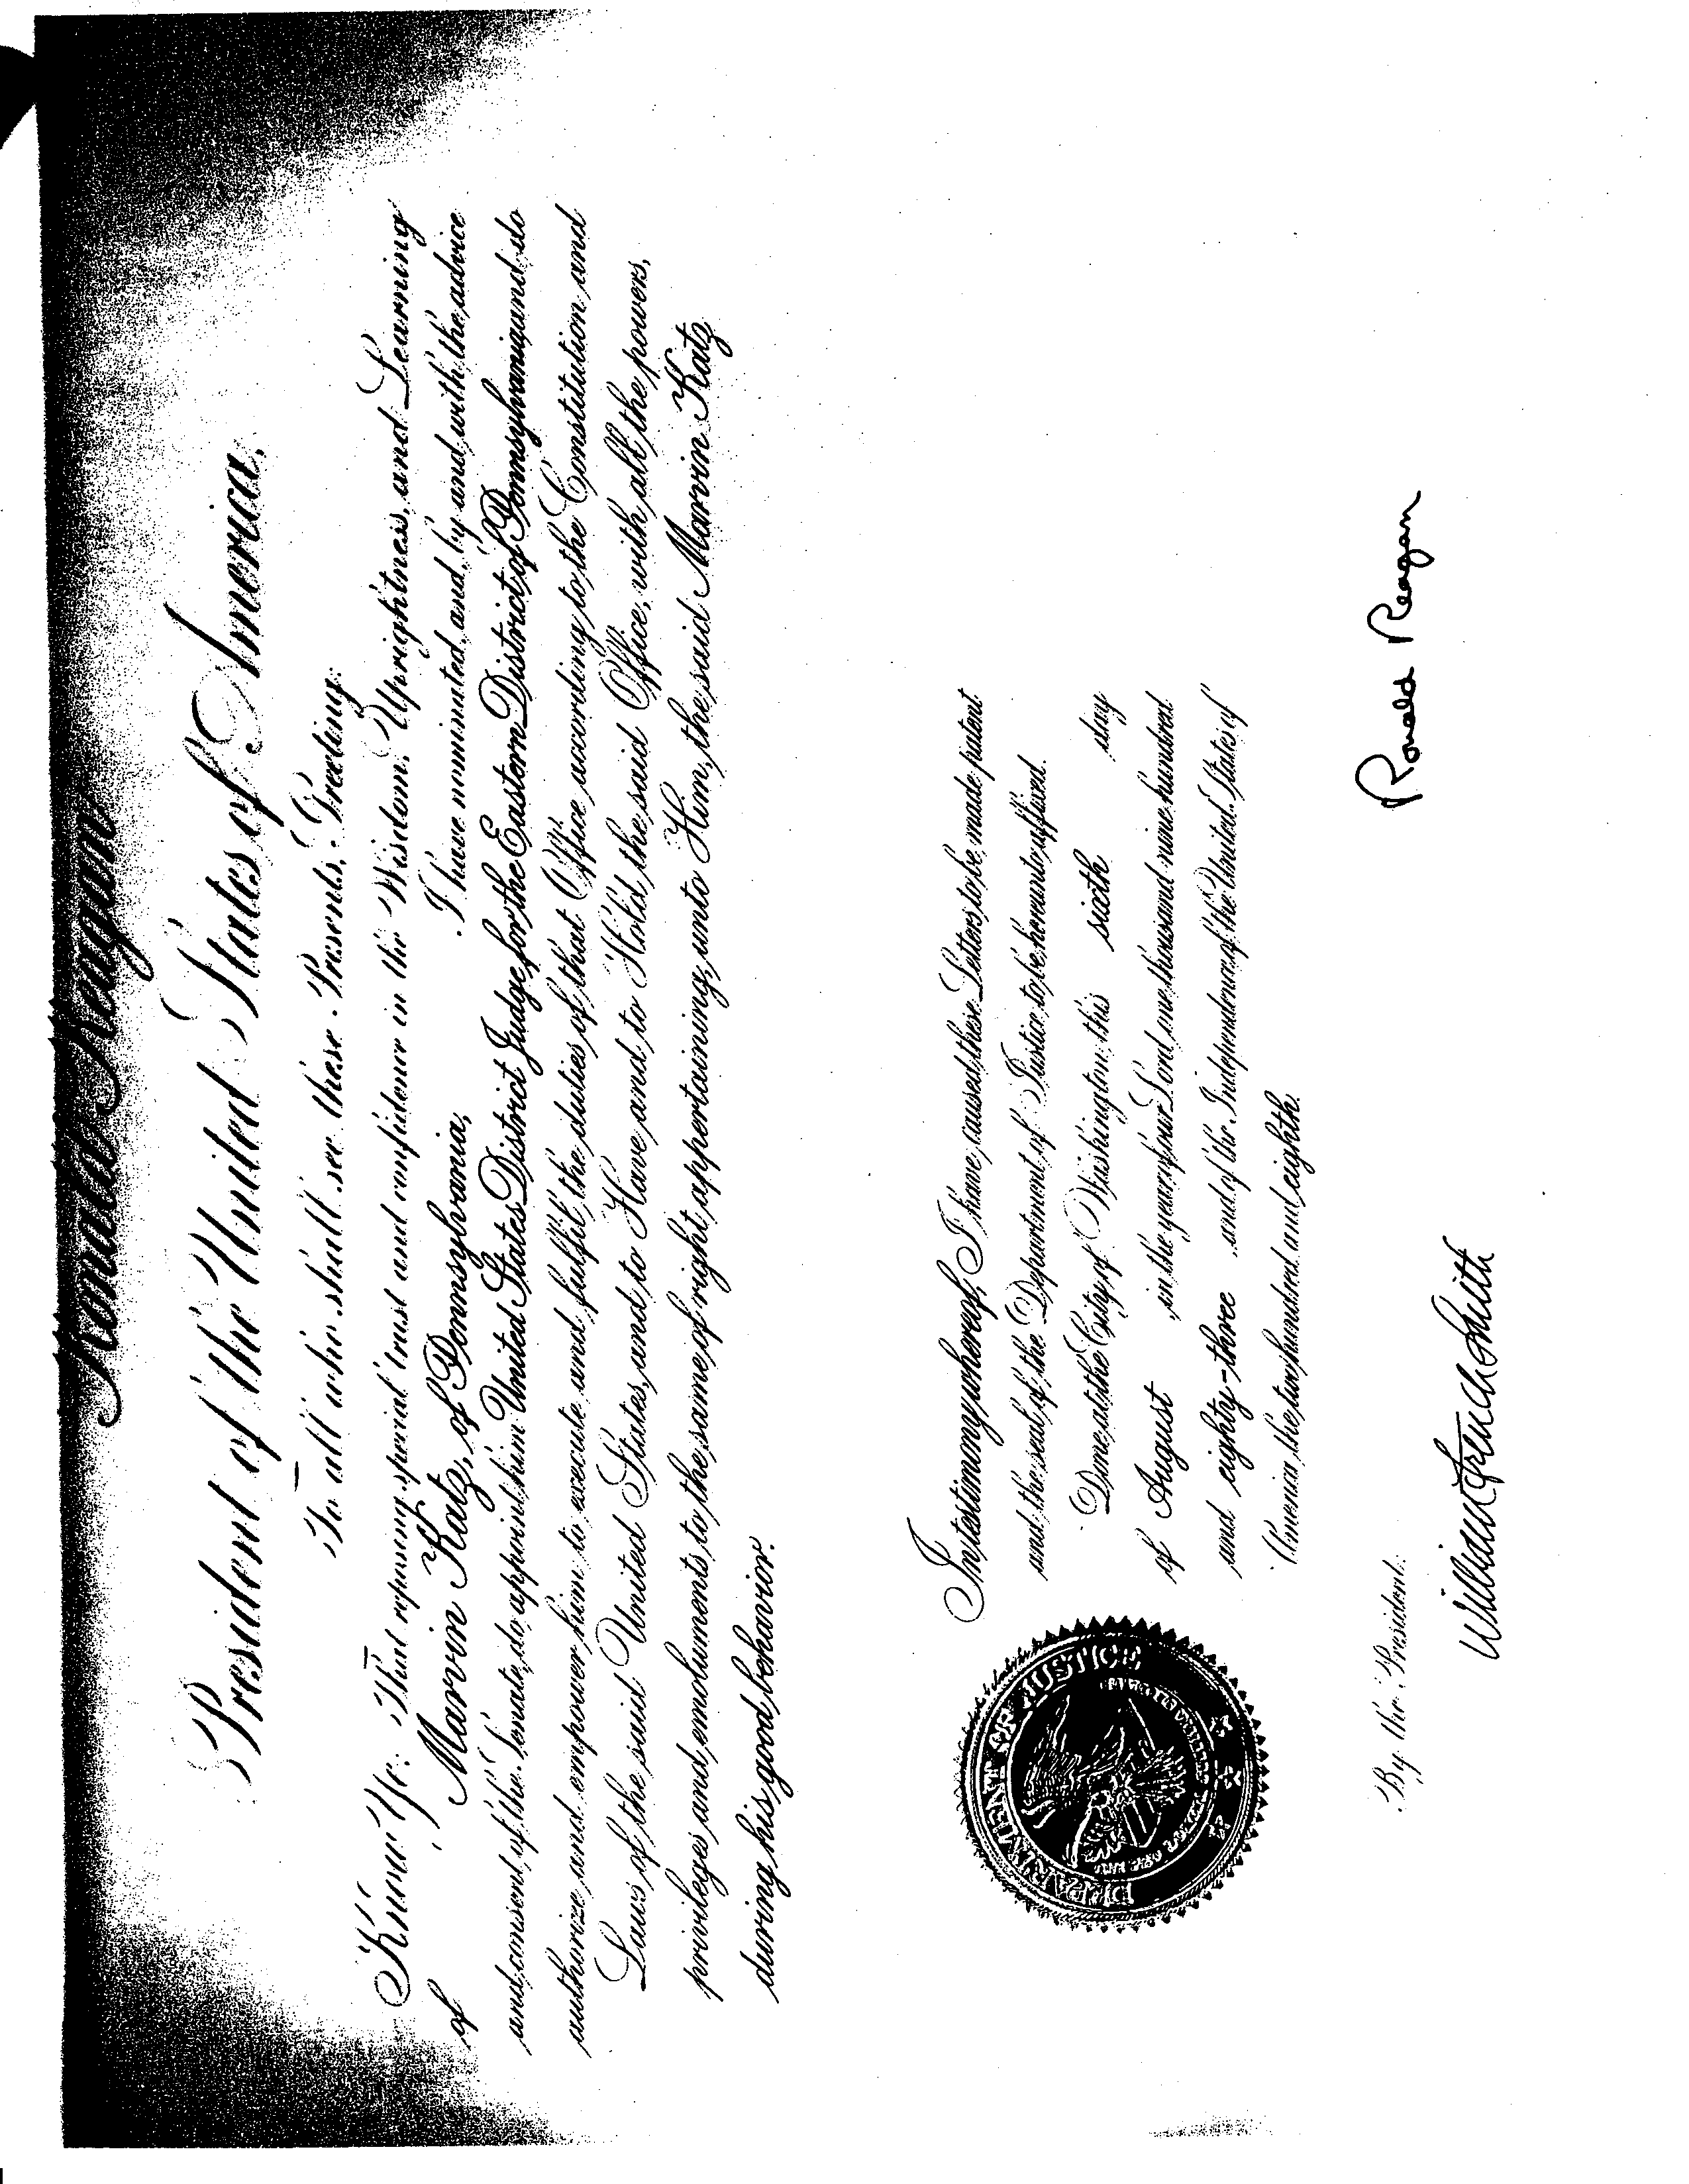 Ronald Reagan
President of the United States of America,
To all who shall see these Presents, Greeting:
Know Ye; That reposing special trust and confidence in the Wisdom, Uprightness, and Learning
of Marvin Katz, of Pennsylvania, I have nominated, and, by and with the advice
and consent of the Senate, do appoint him United States District Judge for the Eastern District of Pennsylvania and do
authorize and empower him to execute and fulfil the duties of that Office according to the Constitution and
Laws of the said United States, and to Have and to Hold the said Office, with all the powers,
privileges and emoluments to the same of right appertaining, unto Him, the said Marvin Katz
during his good behavior.
In testimony whereof, I have caused these Letters to be made patent
and the seal of the Department of Justice to be hereunto affixed.
Done at the City of Washington this sixth day
of August in the year of our Lord one thousand nine hundred
and eighty-three and of the Independence of the United States of
America the two hundred and eighth.
DEPARTMENT OF JUSTICE
Ronald Reagan
By the President:
William French Smith